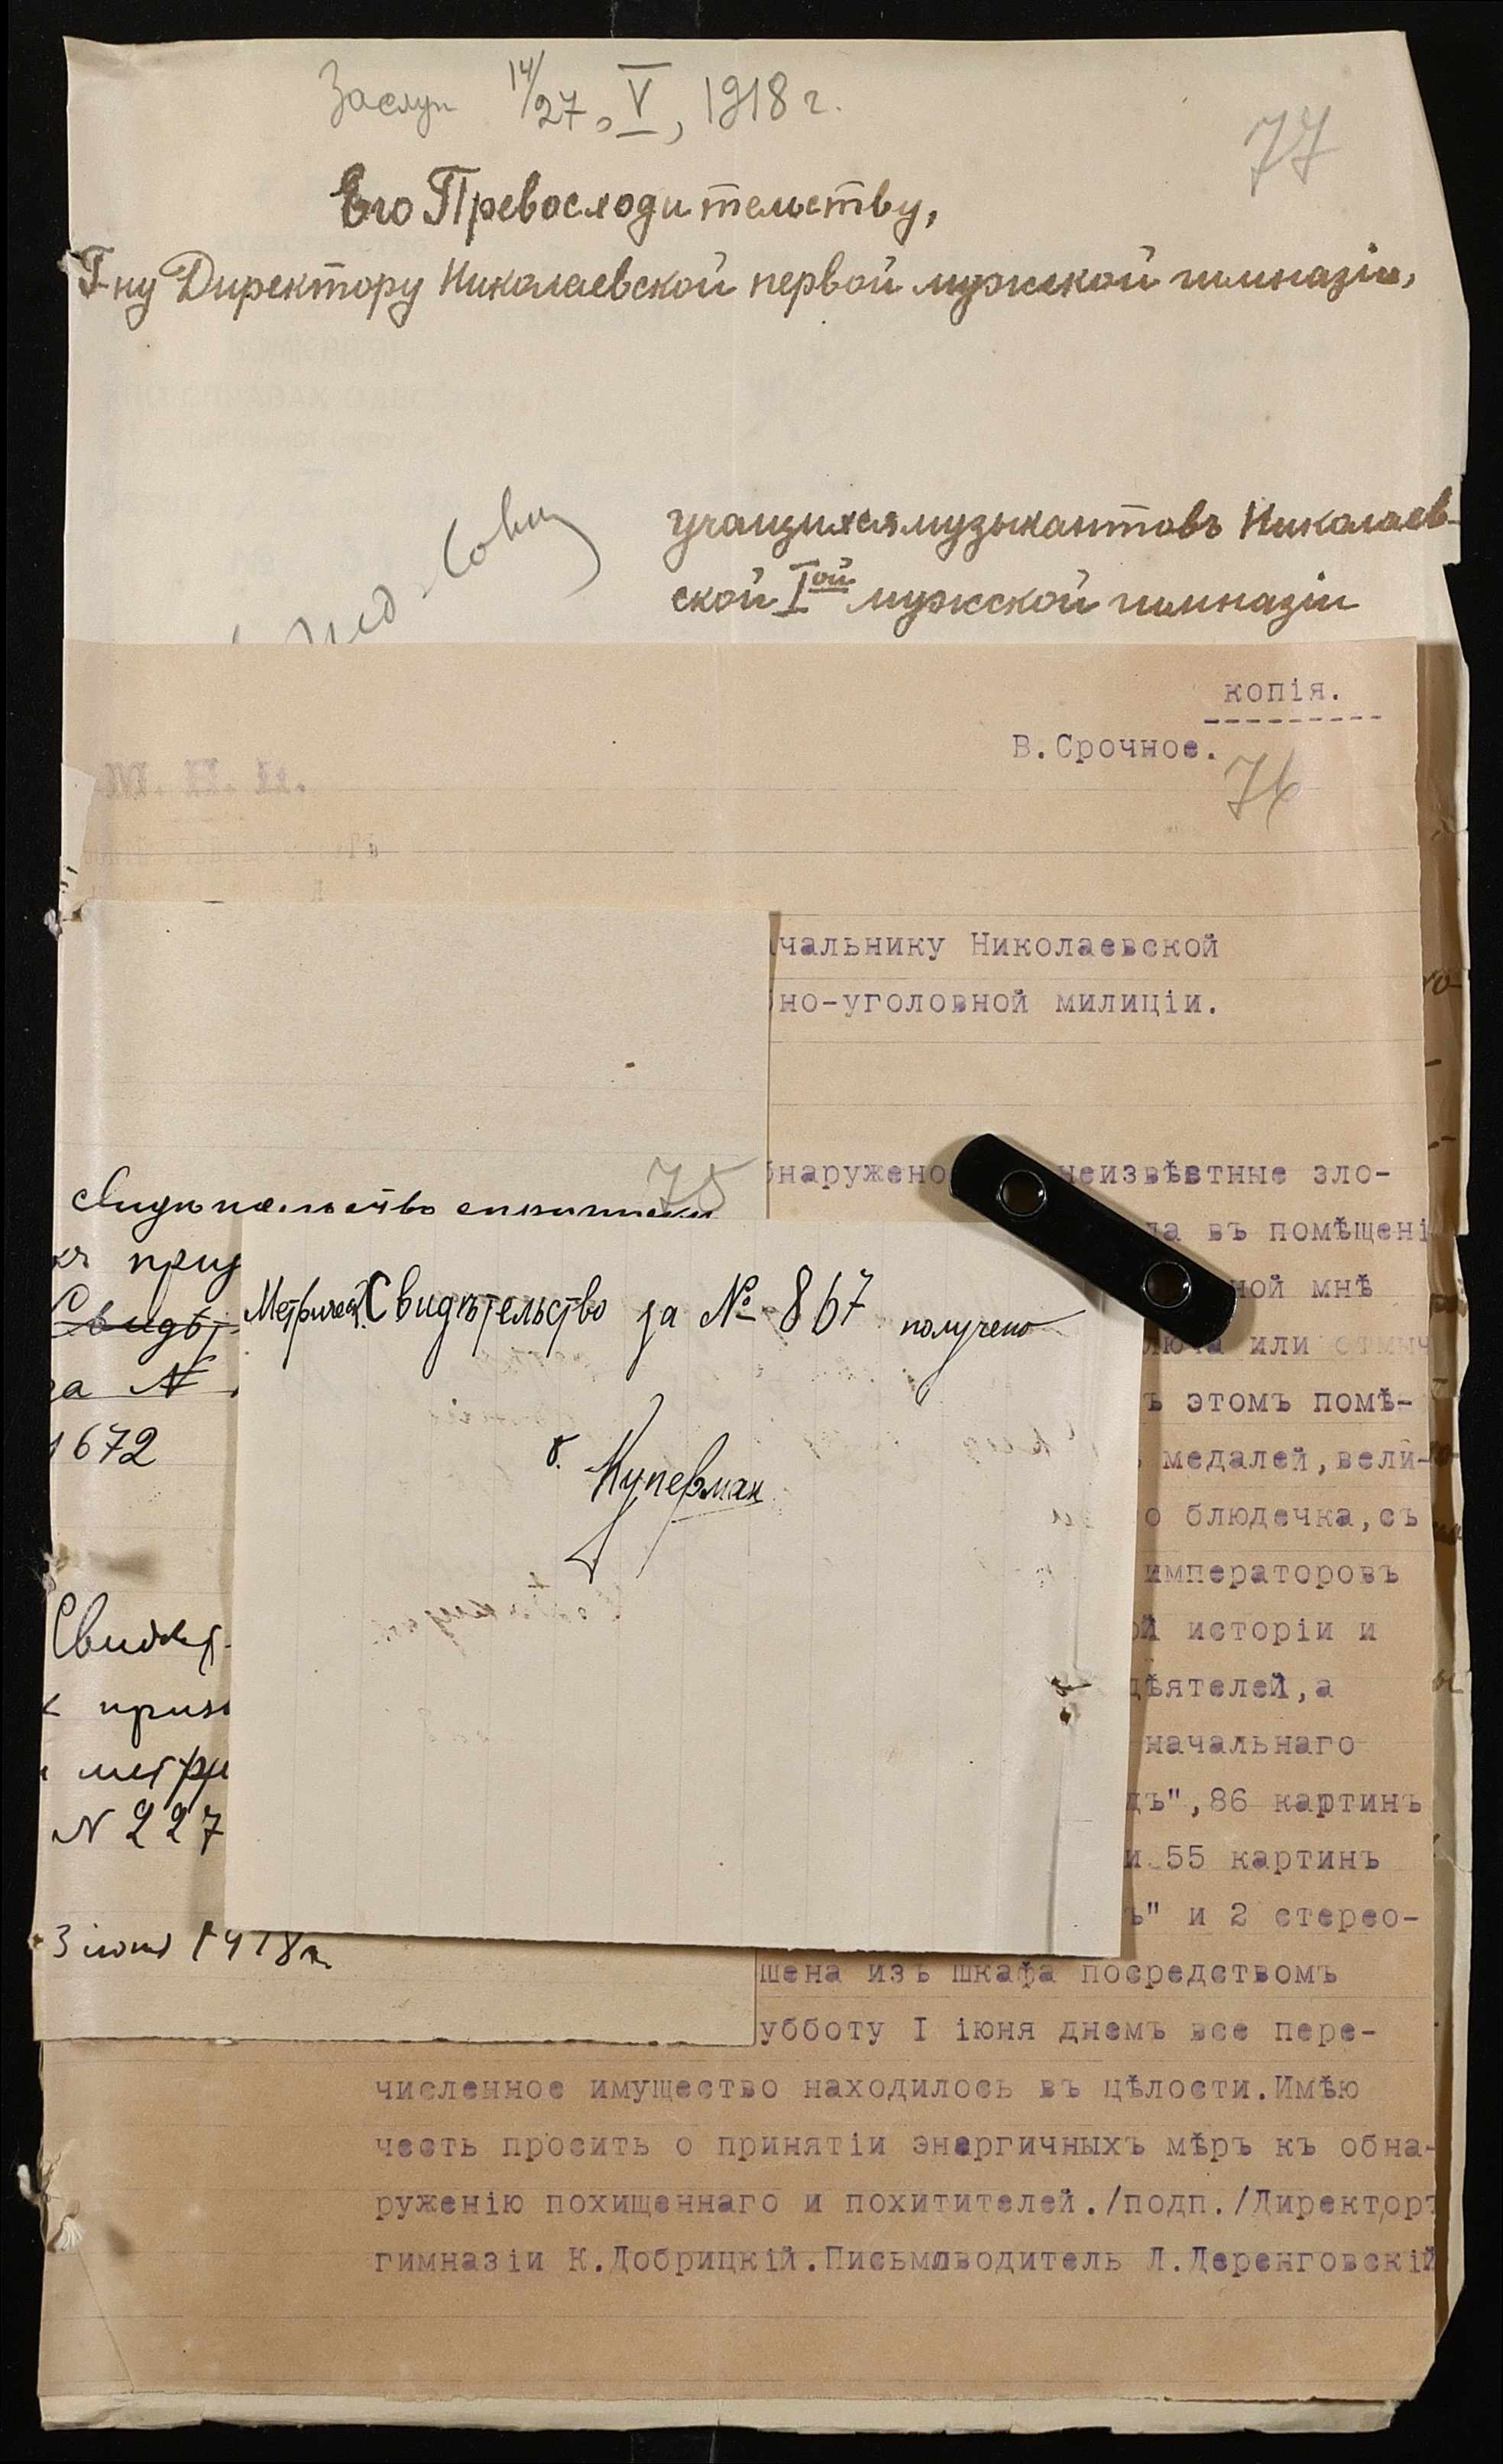 Заслуш 14/27, V, 1918 г.
77
Его Превосходительству,
Г-ну Директору Николаевской первой мужской гимназіи,
учащихся музыкантовъ Николаев-
ской Iой мужской гимназіи
копія.
В.Срочное.
76
М. Н. П.
чальнику Николаевской
но-уголовной милиціи.
наружено неизвѣстные зло-
75
въ помѣщені
ной мнѣ
или отмыч
ъ этомъ помѣ-
медалей,вели-
о блюдечка,съ
императоровъ
ой исторіи и
дѣятелей,а
начальнаго
дъ",86 картинъ
и 55 картинъ
ъ" и 2 стерео-
шена изъ шкафа посредствомъ
убботу I іюня днемъ все пере-
численное имущество находилось въ цѣлости.Имѣю
честь просить о принятіи энергичныхъ мѣръ къ обна-
руженію похищеннаго и похитителей./подп./Директоръ
гимназіи К.Добрицкій.Письмоводитель Л.Деренговскій
прид
Свидѣт
за №
1672
Свидѣт
метри
N 227
3 іюня 1918 г.
Метрическ. Свидѣтельство за № 867 получено
Куперман